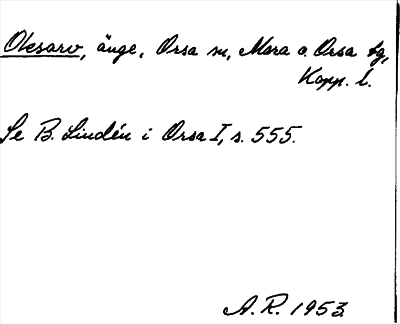 Olesarv, änge, Orsa sn, Mora o. Orsa tg,
Kopp. l.
Se B. Lindén i Orsa I, s. 555.
A. R. 1953.